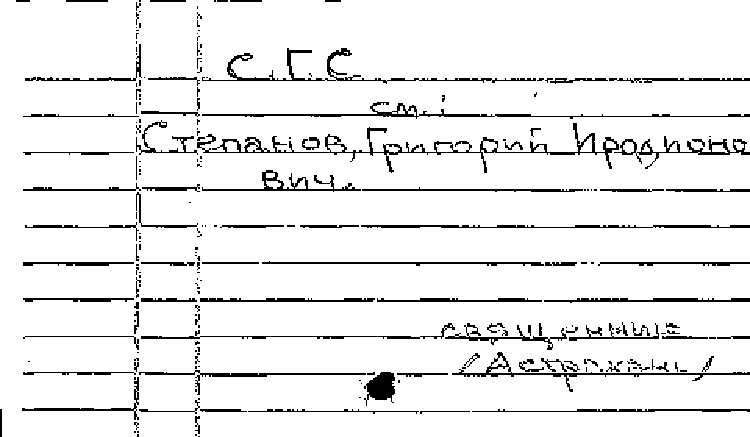 С.Г.С.
см.:
Степанов, Григорий Иродионо
вич.
священник
(Астрахань)